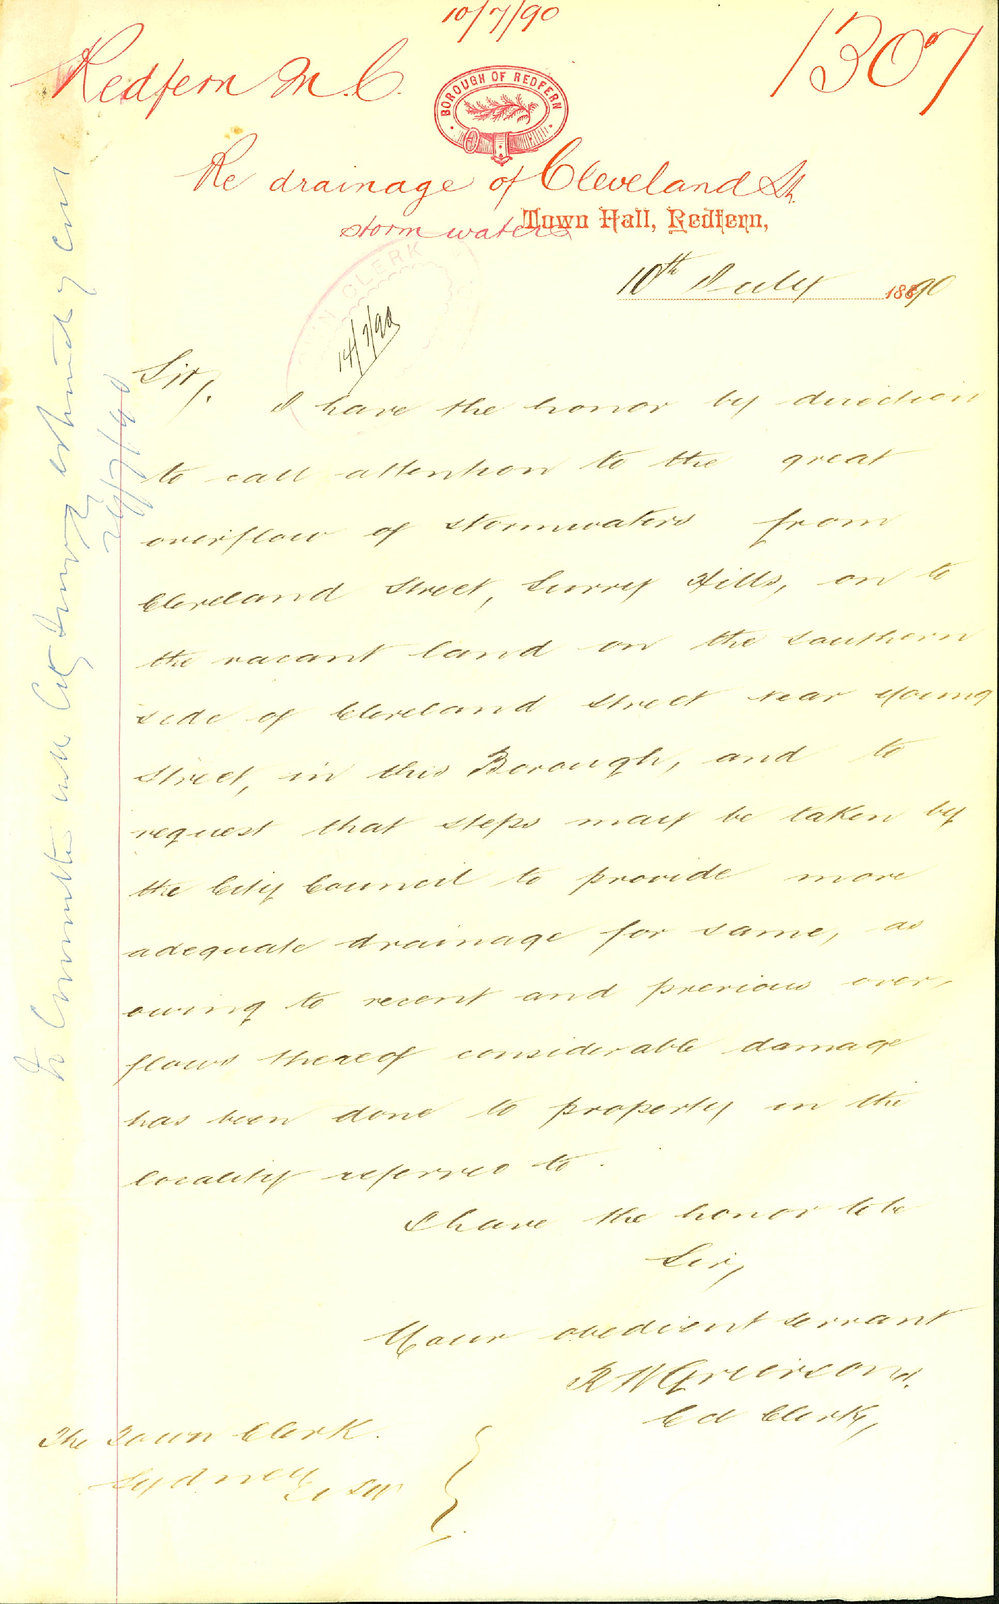 10/7/90
Redfern M.C.
1307
BOROUGH OF REDFERN
Re drainage of Cleveland St.
storm waters
Town Hall, Redfern,
10th July 1890
CLERK
14/7/90
Sir,
I have the honor by direction
to call attention to the great
overflow of stormwaters from
Cleveland Street, Surry Hills, on to
the vacant land on the southern
side of Cleveland Street near Young
Street, in this Borough, and to
request that steps may be taken by
the City Council to provide more
adequate drainage for same, as
owing to recent and previous over-
flows thereof considerable damage
has been done to property in the
locality referred to.
I have the honor to be
Sir,
Your obedient servant
Cl Clerk,
The Town Clerk.
Sydney
To Committee with City Surveyors estimate of cost
24/7/90